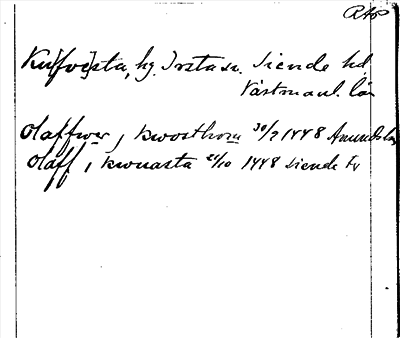 RAp
Ku[fve]sta, hg. Irsta sn. Siende hd.
Västmanl. län
Olaffwer j kwosthom 30/7 1448 Amundsbo
Olaff j kwnasta 21/10 1448 Siende hd